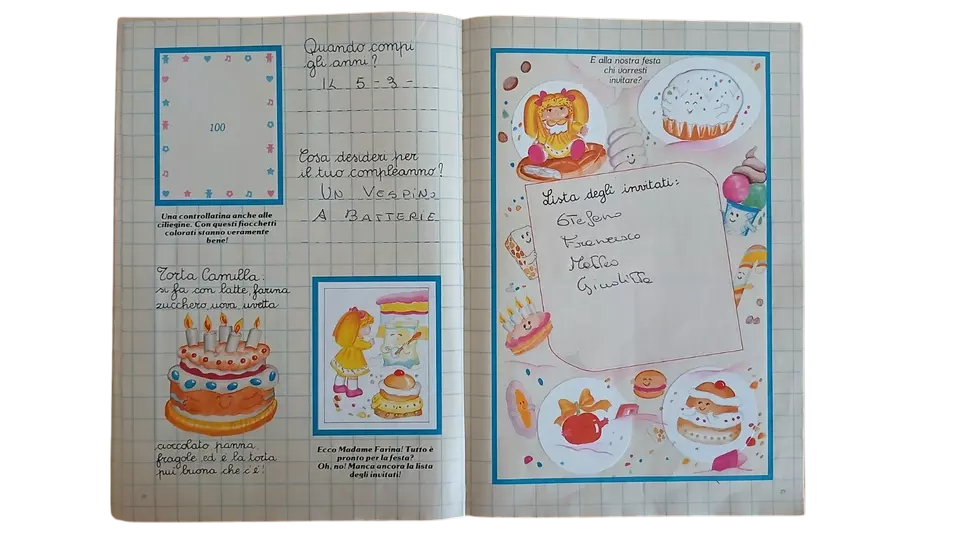 100
Una controllatina anche alle
ciliegine. Con questi fiocchetti
colorati stanno veramente
bene!
Quando compi
gli anni?
IL 5 - 3 -
Cosa desideri per
il tuo compleanno?
UN VESPINO
A BATTERIE
Torta Camilla:
si fa con latte, farina
zucchero, uova, uvetta
cioccolato panna
fragole ed è la torta
più buona che c'è!
Ecco Madame Farina! Tutto è
pronto per la festa?
Oh, no! Manca ancora la lista
degli invitati!
E alla nostra festa
chi vorresti
invitare?
Lista degli invitati:
Stefano
Francesco
Matteo
Giuditta